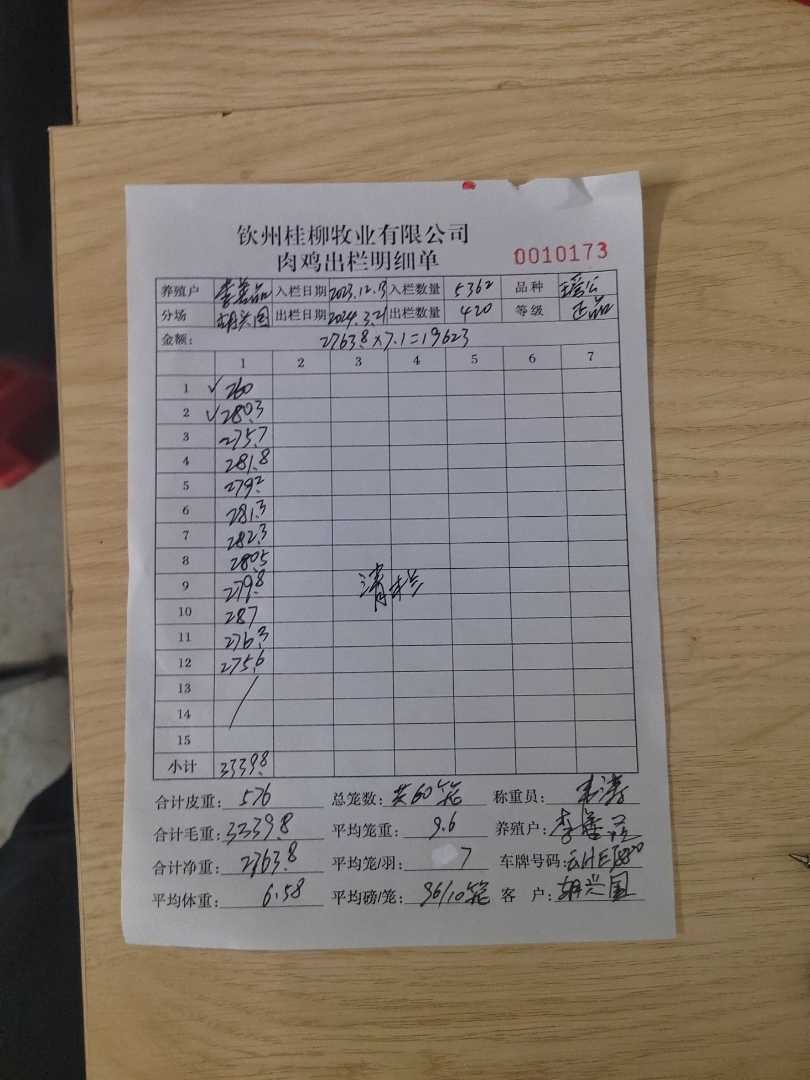 钦州桂柳牧业有限公司
肉鸡出栏明细单 0010173
养殖户 李善品 入栏日期 2023.12.13 入栏数量 5362 品种 瑶公
分场 胡兴国 出栏日期 2024.3.21 出栏数量 420 等级 正品
金额: 2763.8×7.1=19623
1 2 3 4 5 6 7
1 ✓260
2 ✓280.3
3 275.7
4 281.8
5 279.2
6 281.3
7 282.3
8 280.5
9 279.8 清栏
10 287
11 276.3
12 275.6
13
14
15
小计 3339.8
合计皮重: 576 总笼数: 共60笼 称重员:
合计毛重: 3339.8 平均笼重: 9.6 养殖户: 李善品
合计净重: 2763.8 平均笼/羽: 7 车牌号码:
平均体重: 6.58 平均磅/笼: 96/10笼 客 户: 胡兴国